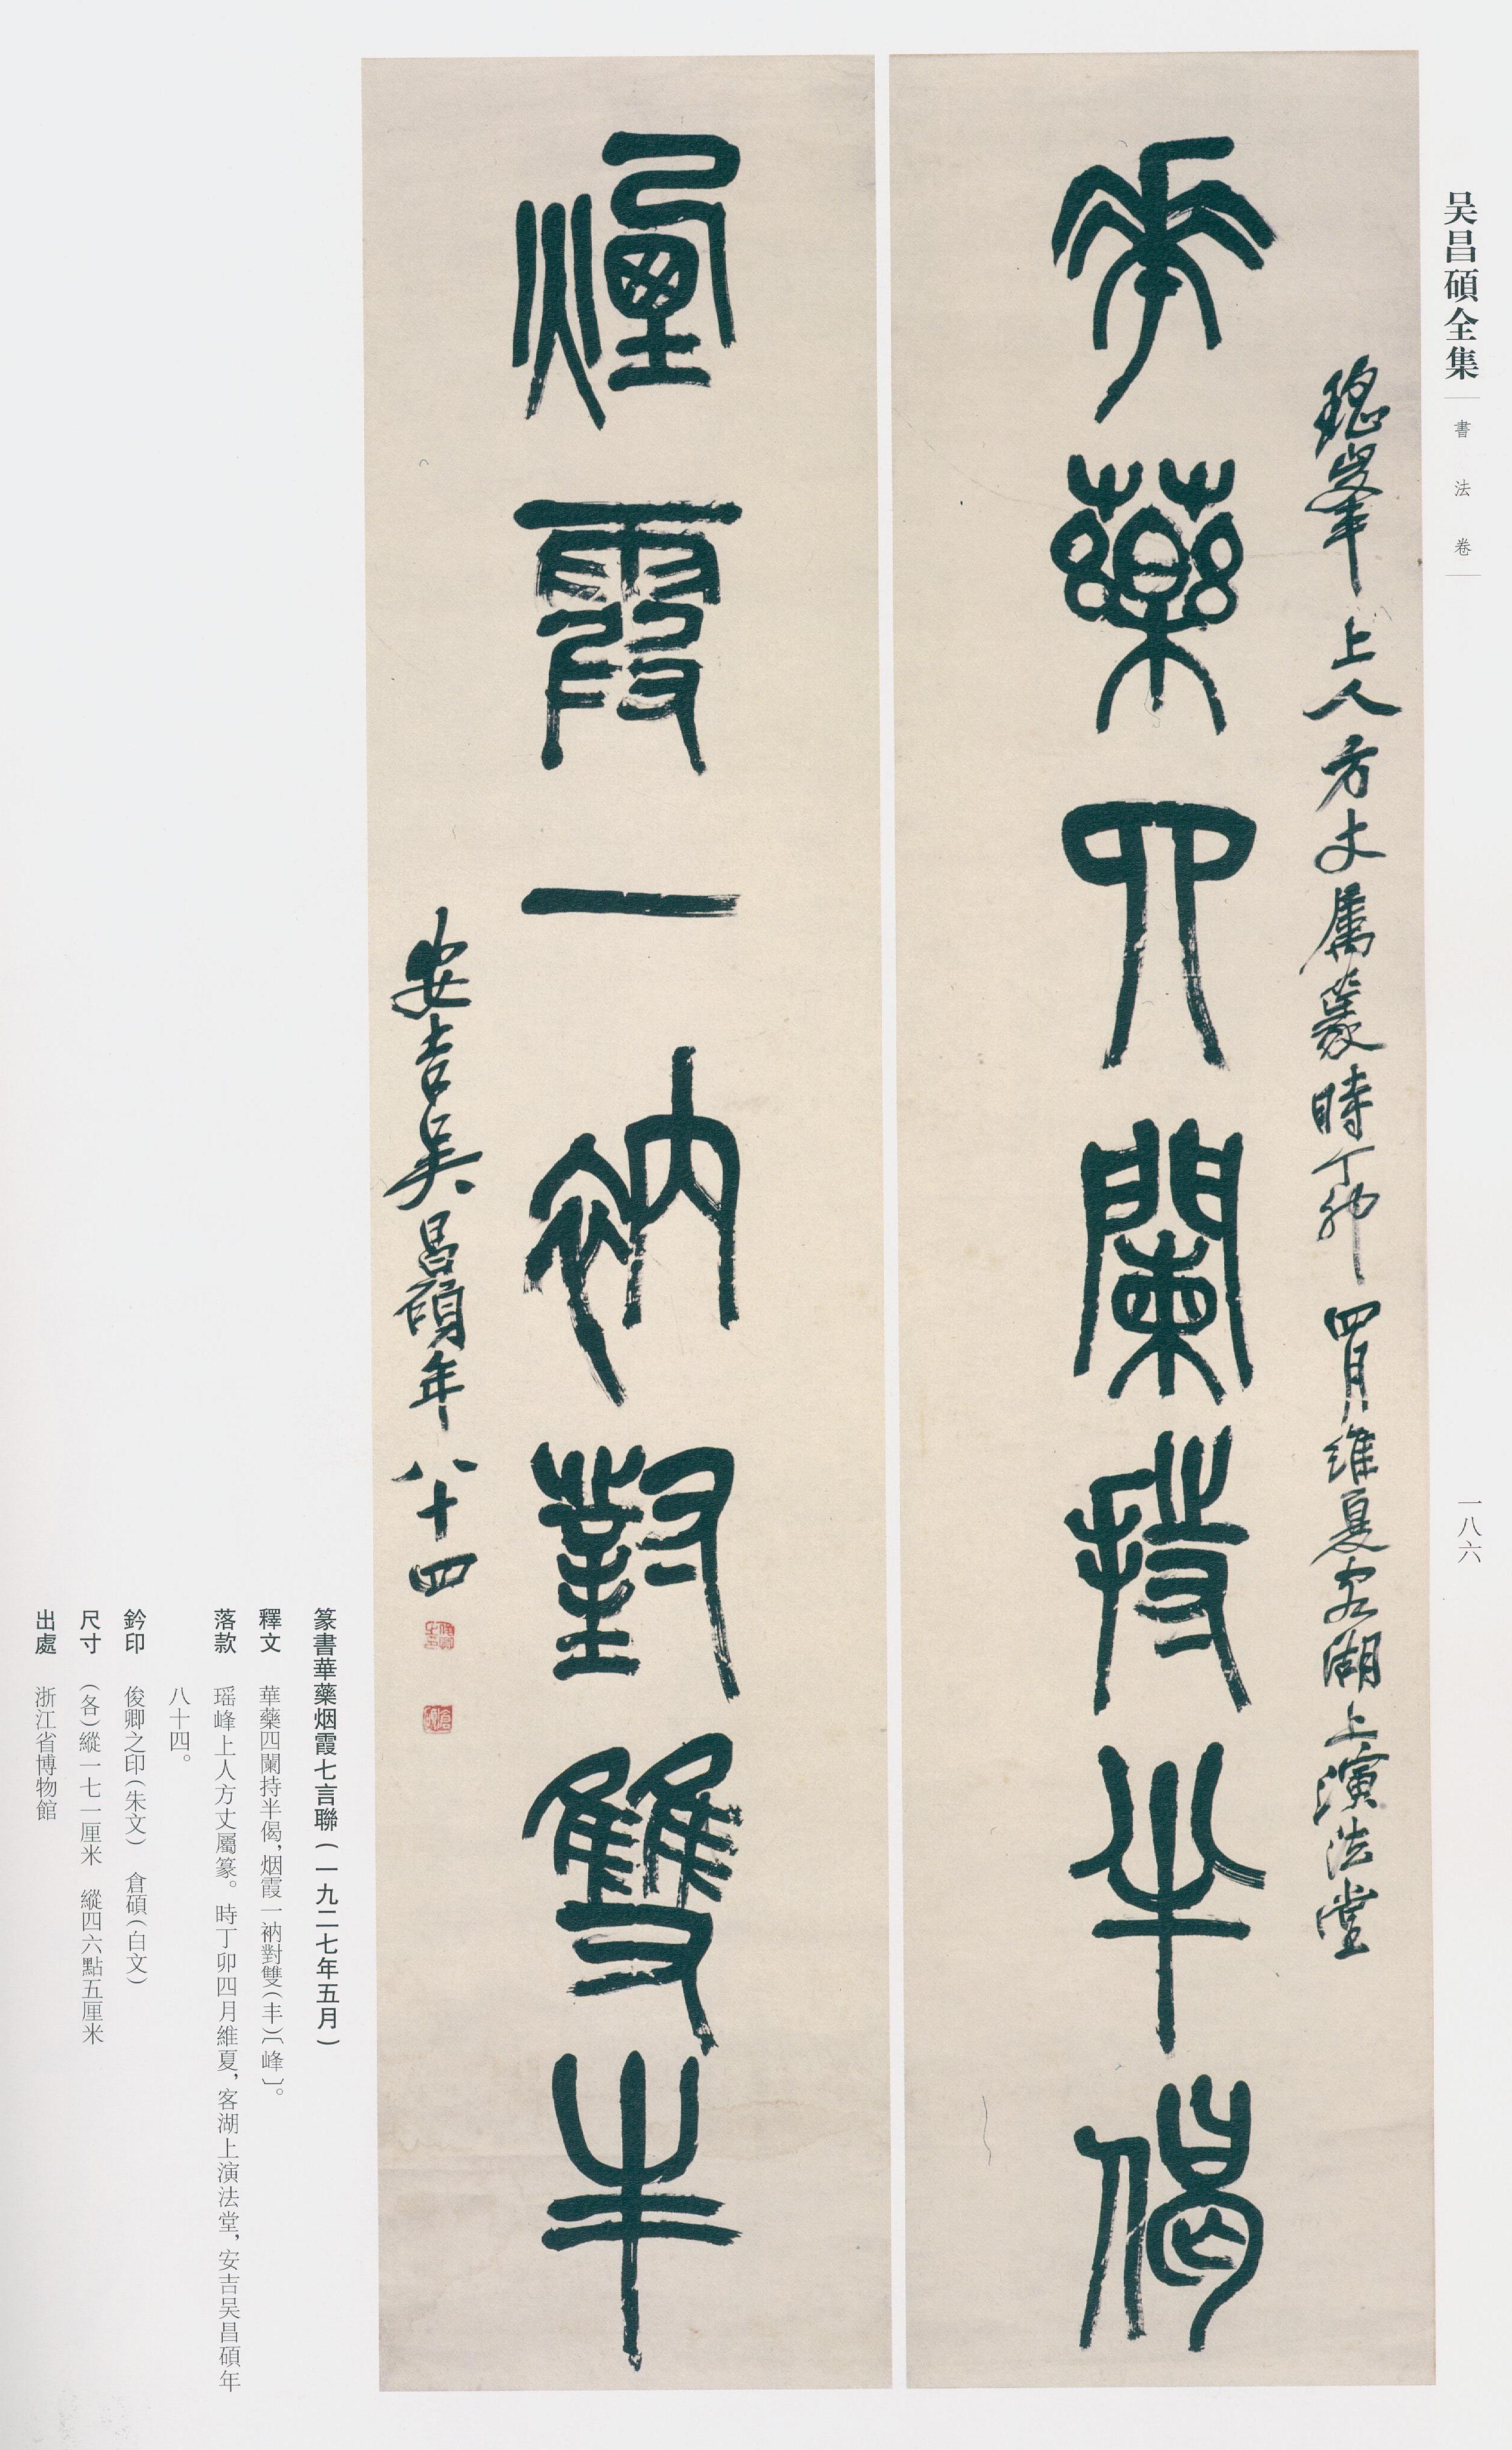 吴昌碩全集
書法卷
一八六
瑤峯上人方丈屬篆時丁卯四月維夏客湖上演法堂
華藥四闌持半偈
煙霞一衲對雙丰
安吉吴昌碩年八十四
篆書華藥烟霞七言聯(一九二七年五月)
釋文 華藥四闌持半偈,烟霞一衲對雙(丰)〔峰〕。
落款 瑶峰上人方丈屬篆。時丁卯四月維夏,客湖上演法堂,安吉吴昌碩年
八十四。
鈐印 俊卿之印(朱文) 倉碩(白文)
尺寸 (各)縱一七一厘米 縱四六點五厘米
出處 浙江省博物館